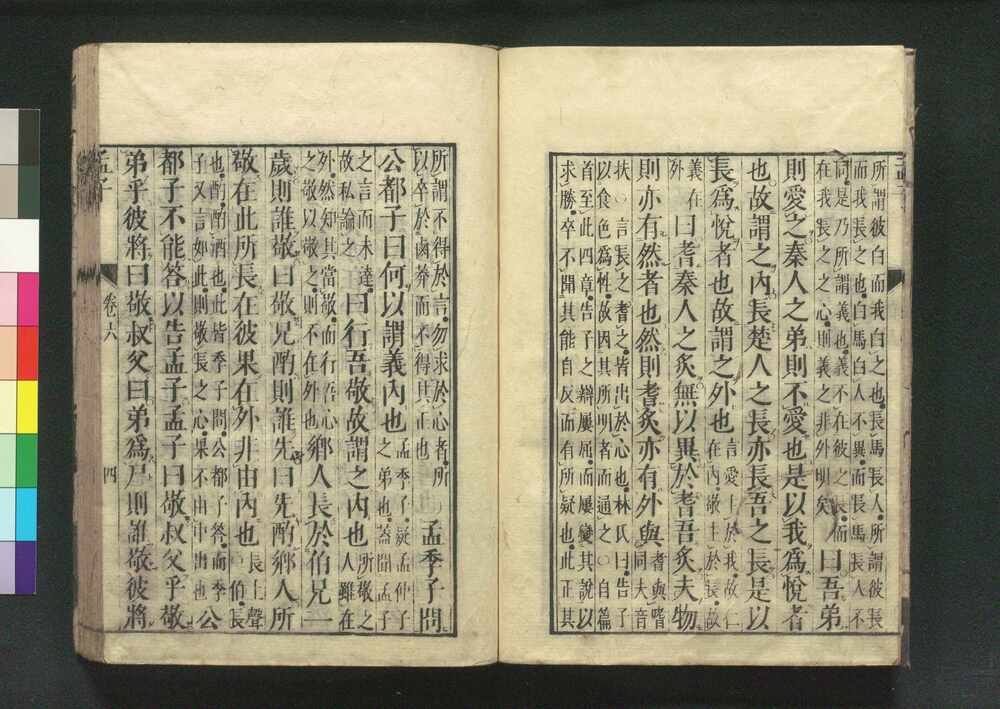 所謂彼白而我白之也長馬長人所謂彼長
而我長之也白馬白人不異而長馬長人不
同是乃所謂義也義不在彼之長而
在我長之之心則義之非外明矣
曰吾弟
則愛之秦人之弟則不愛也是以我爲悅者
也故謂之內長楚人之長亦長吾之長是以
長爲悅者也故謂之外也
言愛主於我故仁
在內敬主於長故
義在
外
曰耆秦人之炙無以異於耆吾炙夫物
則亦有然者也然則耆炙亦有外與
耆與嗜
同夫音
扶○言長之耆之皆出於心也林氏曰告子
以食色爲性故因其所明者而通之○自篇
首至此四章告子之辯屢屈而屢變其說以
求勝卒不聞其能自反而有所疑也此正其
所謂不得於言勿求於心者所
以卒於鹵莽而不得其正也
○孟季子問
公都子曰何以謂義內也
孟季子疑孟仲子
之弟也蓋聞孟子
之言而未達
故私論之
曰行吾敬故謂之內也
所敬之
人雖在
外然知其當敬而行吾心
之敬以敬之則不在外也
鄉人長於伯兄一
歲則誰敬曰敬兄酌則誰先曰先酌鄉人所
敬在此所長在彼果在外非由內也
長上聲
○伯長
也酌酌酒也此皆季子問公都子荅而季
子又言如此則敬長之心果不由中出也
公
都子不能答以告孟子孟子曰敬叔父乎敬
弟乎彼將曰敬叔父曰弟爲尸則誰敬彼將
孟子
卷六
四